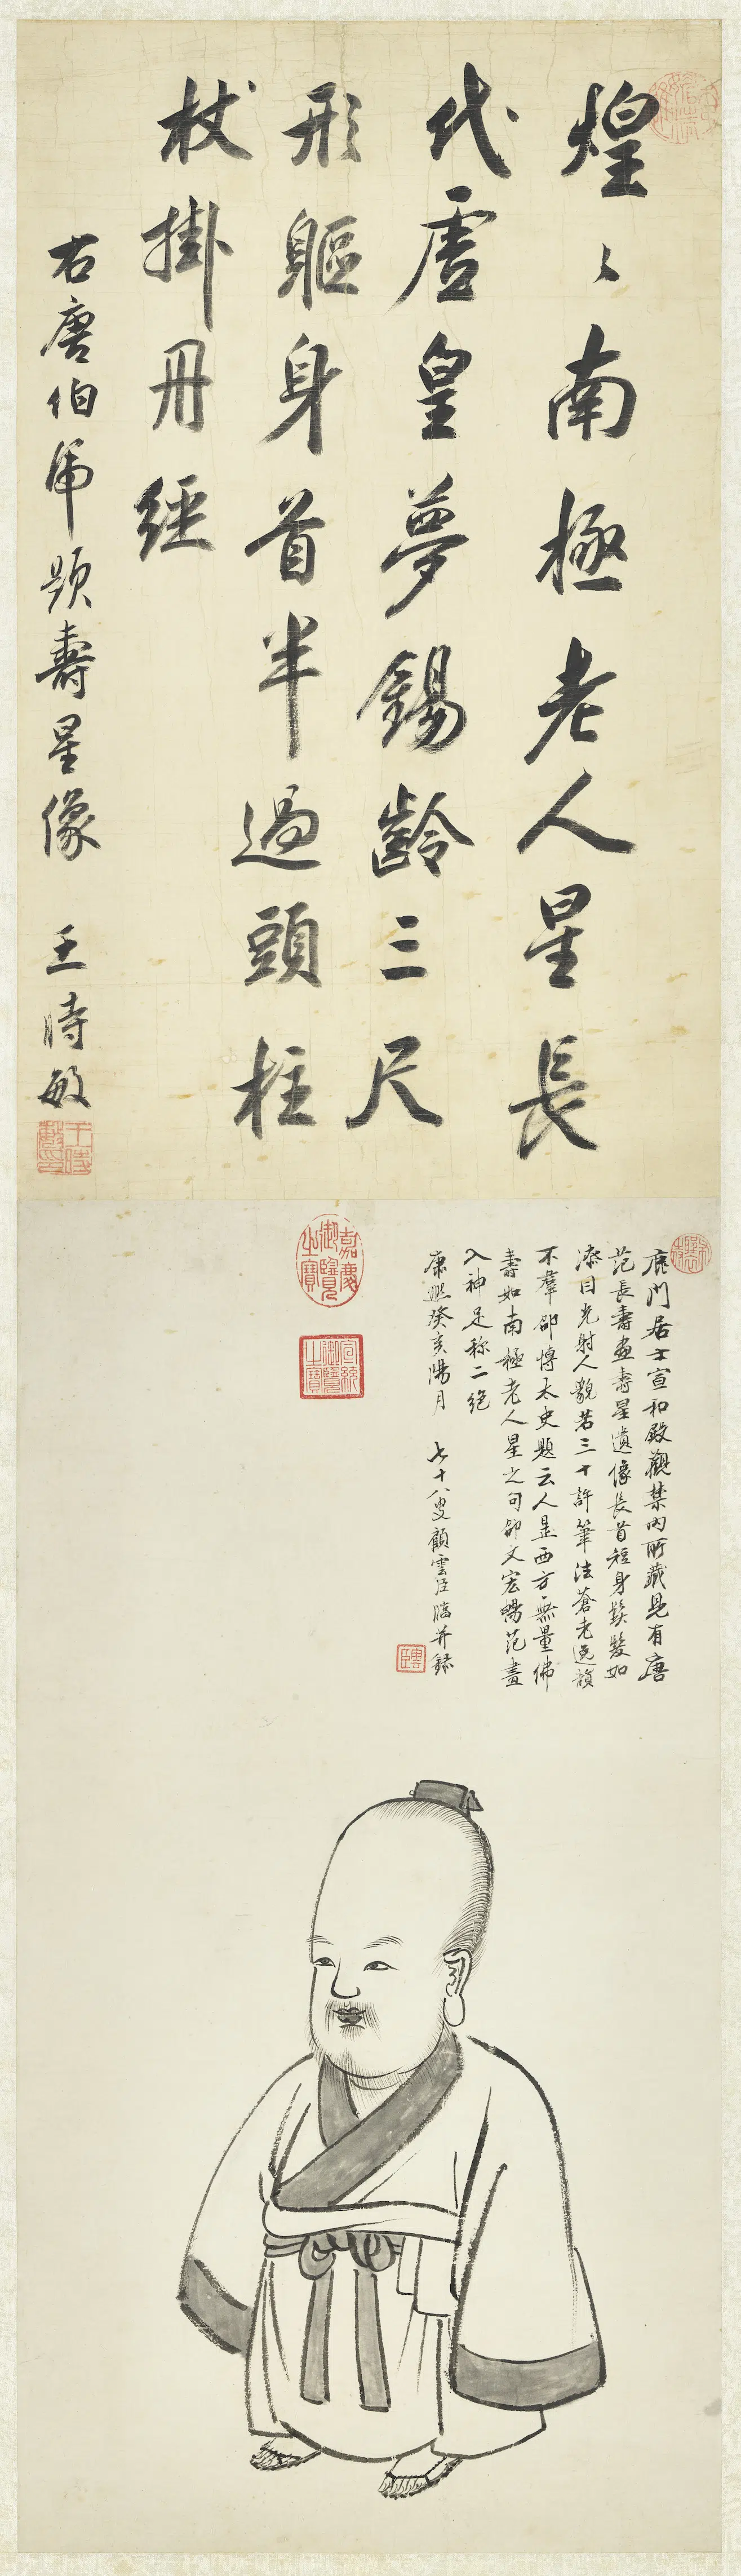 煌〻南極老人星長
代虗皇夢錫齡三尺
形軀身首半過頭柱
杖掛丹經
右唐伯虎題壽星像 王時敏
王時敏印
鹿門居士宣和殿觀禁內所藏見有唐
范長壽畫壽星遺像長首短身鬚髮如
漆目光射人貌若三十許筆法蒼老逸韻
不羣卻愽太史題云人是西方無量佛
壽如南極老人星之句卻文宏暢范畫
入神足称二絶
康熙癸亥陽月 七十八叟顧雲臣臨并録
雲臣
嘉慶御覽之寶
宣統御覽之寶